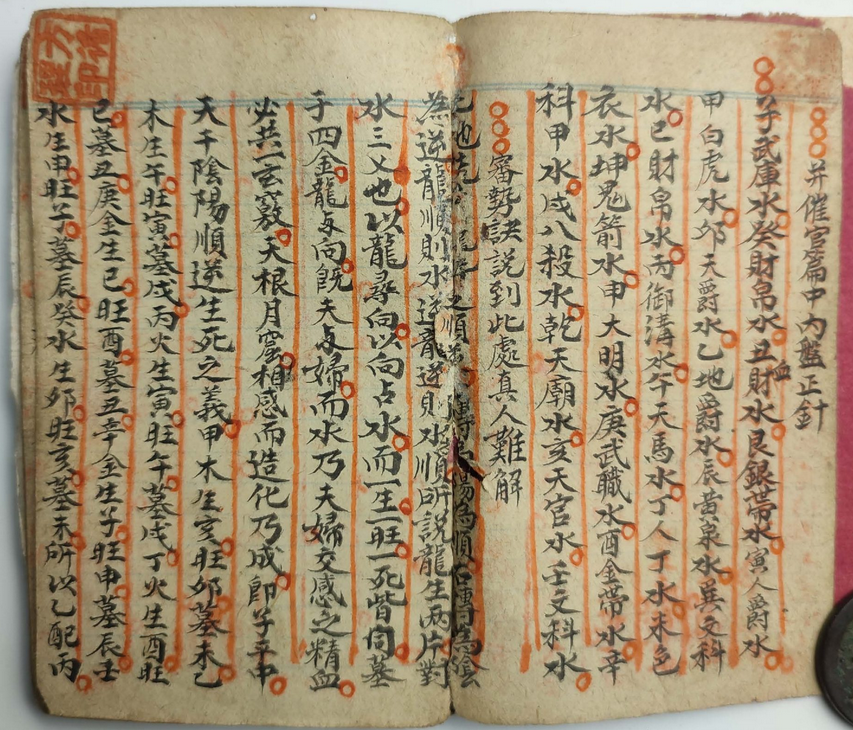 并催官篇中內盤正針
子武庫水癸財帛水丑血財水艮銀帶水寅人爵水
甲白虎水卯天爵水乙地爵水辰黃泉水巽文科
水巳財帛水丙御溝水午天馬水丁人丁水未色
衣水坤鬼箭水申大明水庚武職水酉金帶水辛
科甲水戌八殺水乾天廟水亥天官水壬文科水
審勢訣說到此處真人難解
之順逆 為順右轉為陰
為逆龍順則水逆龍逆則水順所說龍生兩片對
水三叉也以龍尋向以向占水而一生一旺一死皆同墓
于四金龍与向既夫与婦而水乃夫婦交感之精血
必共一玄竅天根月窟相感而造化乃成即羊中
天干陰陽順逆生死之義甲木生亥旺卯墓未乙
木生午旺寅墓戌丙火生寅旺午墓戌丁火生酉旺
巳墓丑庚金生巳旺酉墓丑辛金生子旺申墓辰壬
水生申旺子墓辰癸水生卯旺亥墓未所以乙配丙